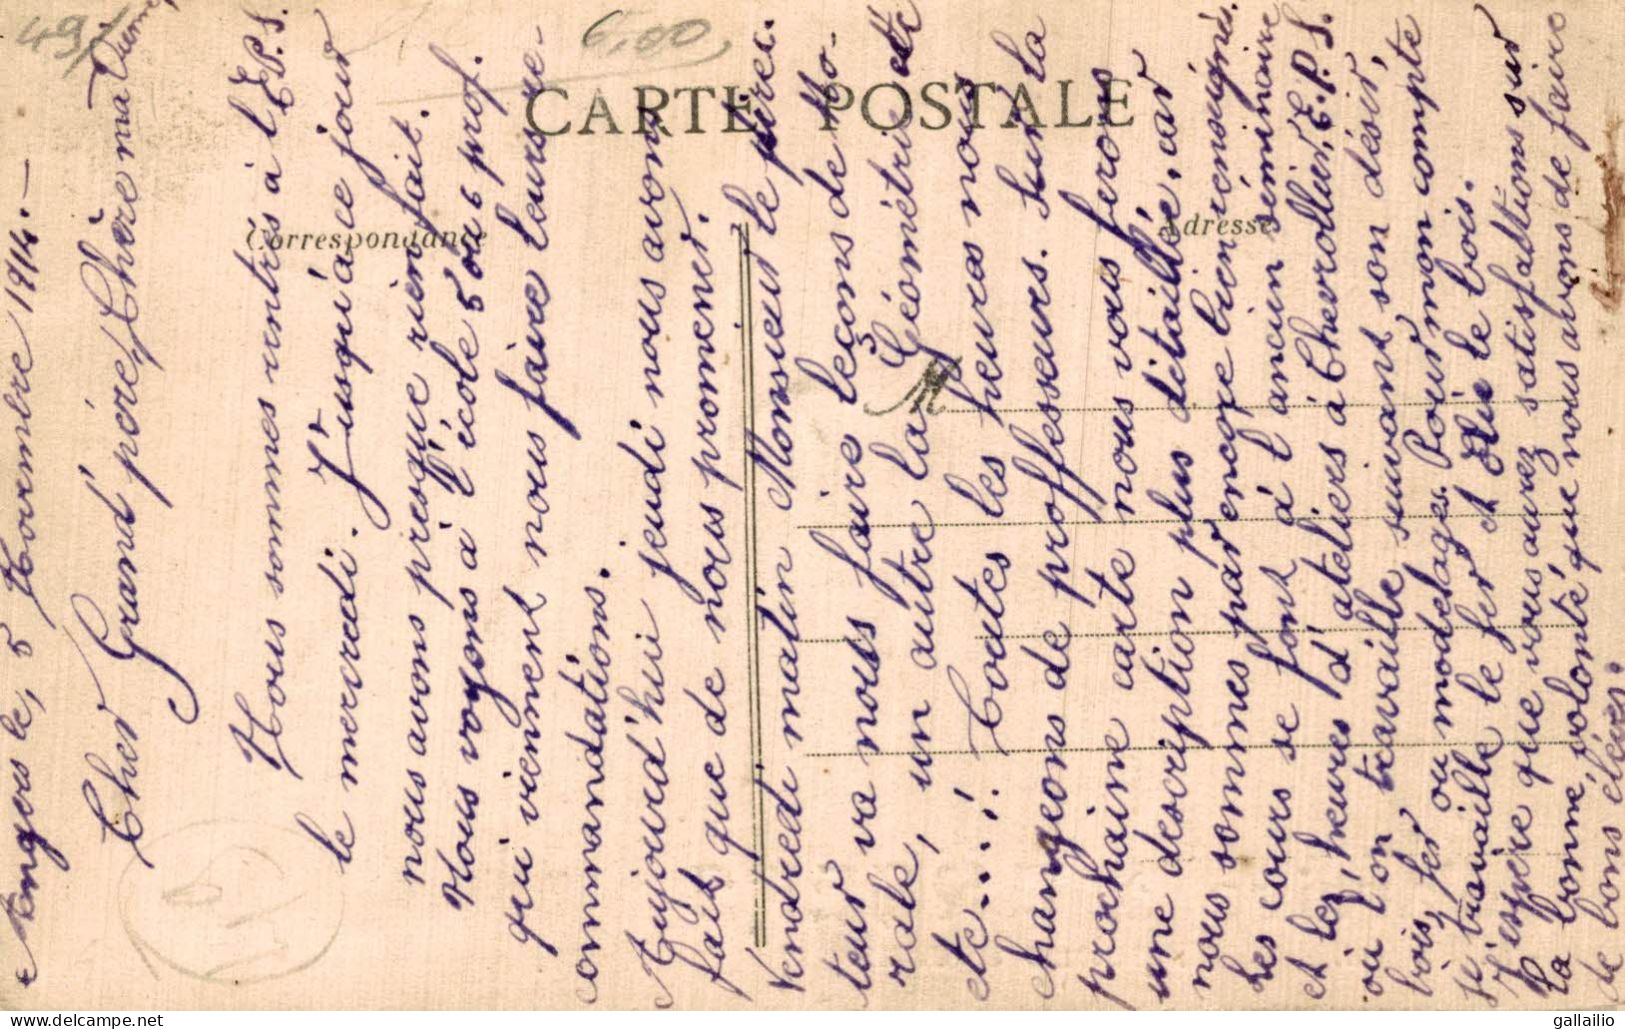 49
6,00
CARTE POSTALE
Correspondance
Adresse
Angers le, 5 Novembre 1914. —
Cher Grand'père, Chère ma
Nous sommes rentrés à l'E.P.S.
le mercredi. Jusqu'à ce jour
nous avons presque rien fait.
Nous voyons à l'école 5 ou 6 prof.
qui viennent nous faire leurs re-
commandations.
Aujourd'hui jeudi nous avons
fait que de nous promener.
Vendredi matin Monsieur le Direc-
teur va nous faire leçons de Mo-
rale, un autre la Géométrie etc
etc....! Toutes les heures nous
changeons de proffesseurs. Sur la
prochaine carte nous vous ferons
une description plus détaillée, car
nous sommes pas encore bien renseignés.
Les cours se font à l'ancien séminaire
et les heures d'ateliers à Chevrollier, E.P.S.
où l'on travaille suivant son désir,
bois, fer ou modelages. Pour mon compte
je travaille le fer et Elie le bois.
J'espère que vous aurez satisfadtions sur
la bonne volonté que nous avons de faire
de bons élèves.
gallailio